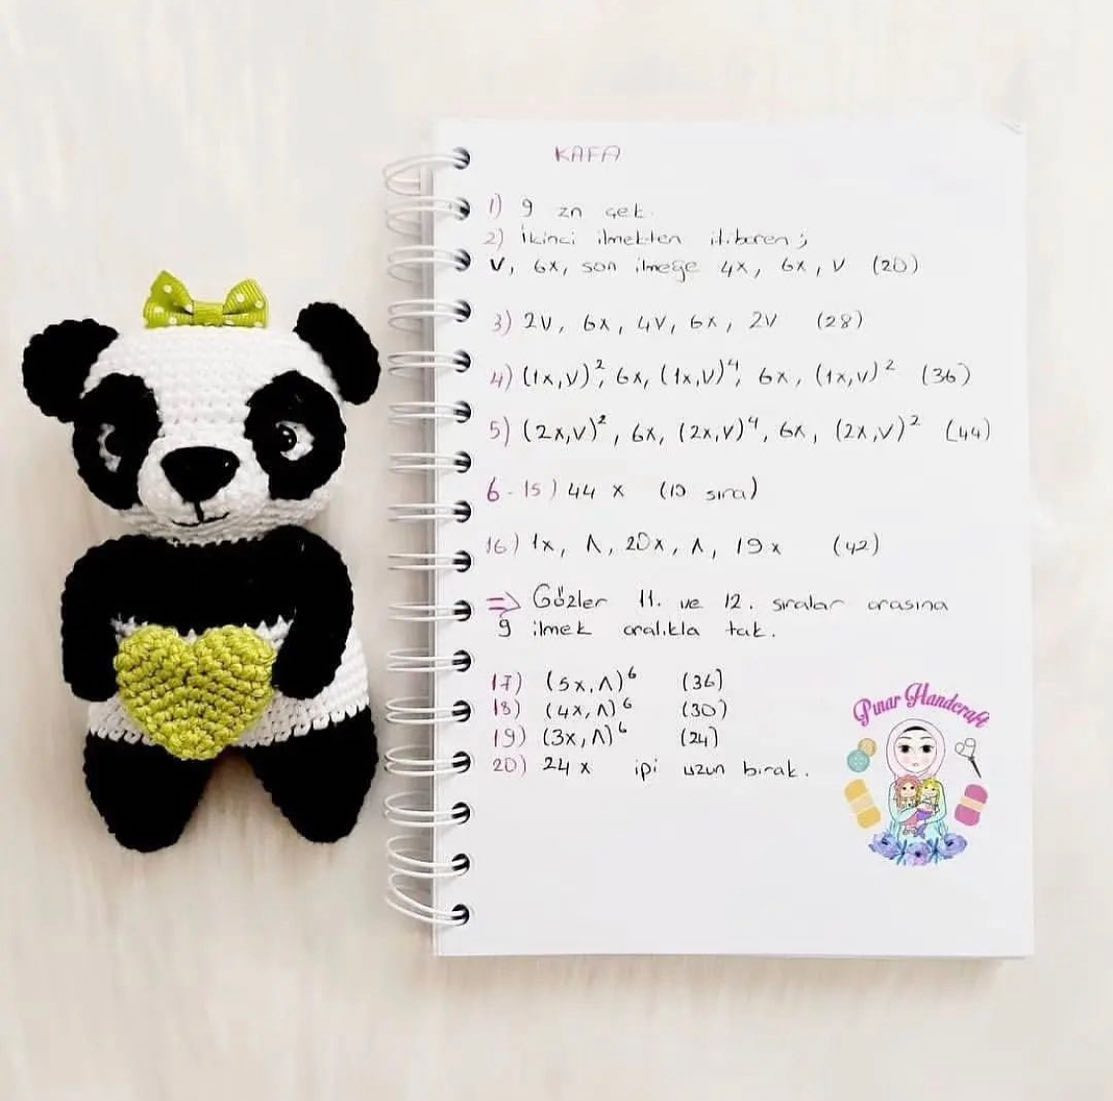 KAFA
1) 9 zn çek.
2) İkinci ilmekten itibaren;
V, 6x, son ilmeğe 4x, 6x, V (20)
3) 2V, 6x, 4V, 6x, 2V (28)
4) (1x,V)², 6x, (1x,V)⁴, 6x, (1x,V)² (36)
5) (2x,V)², 6x, (2x,V)⁴, 6x, (2x,V)² (44)
6-15) 44 x (10 sıra)
16) 1x, Λ, 20x, Λ, 19x (42)
⇒ Gözler 11. ve 12. sıralar arasına
9 ilmek aralıkla tak.
17) (5x,Λ)⁶ (36)
18) (4x,Λ)⁶ (30)
19) (3x,Λ)⁶ (24)
20) 24x ipi uzun bırak.
Pınar Handcraft